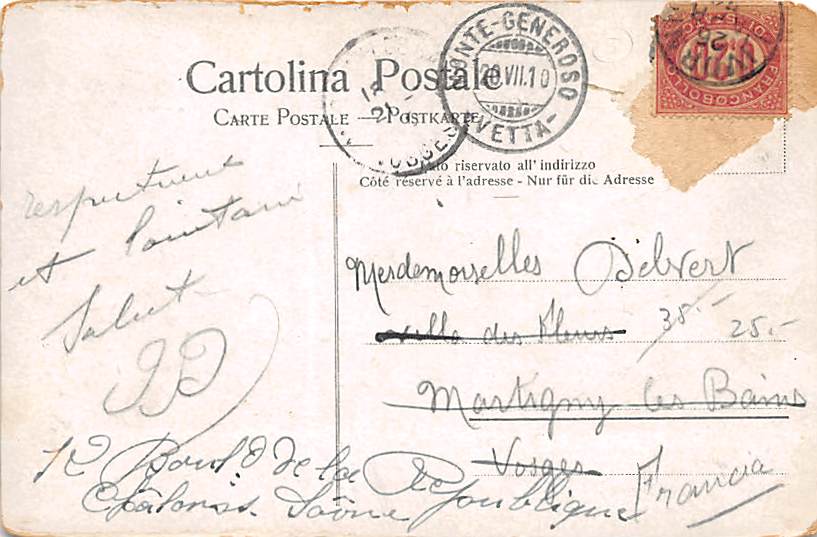 Cartolina Postale
CARTE POSTALE — POSTKARTE
MONTE-GENEROSO
28 VII.10
VETTA
VOSGES
FRANCOBOLLO
riservato all' indirizzo
Côté réservé à l'adresse - Nur für die Adresse
respectueux
et lointain
Salut
Mesdemoiselles Delvert
des Fleurs 35.- 25.-
Martigny les Bains
Vosges
Francia
12 Boul d de la République
Châlons s. Saône